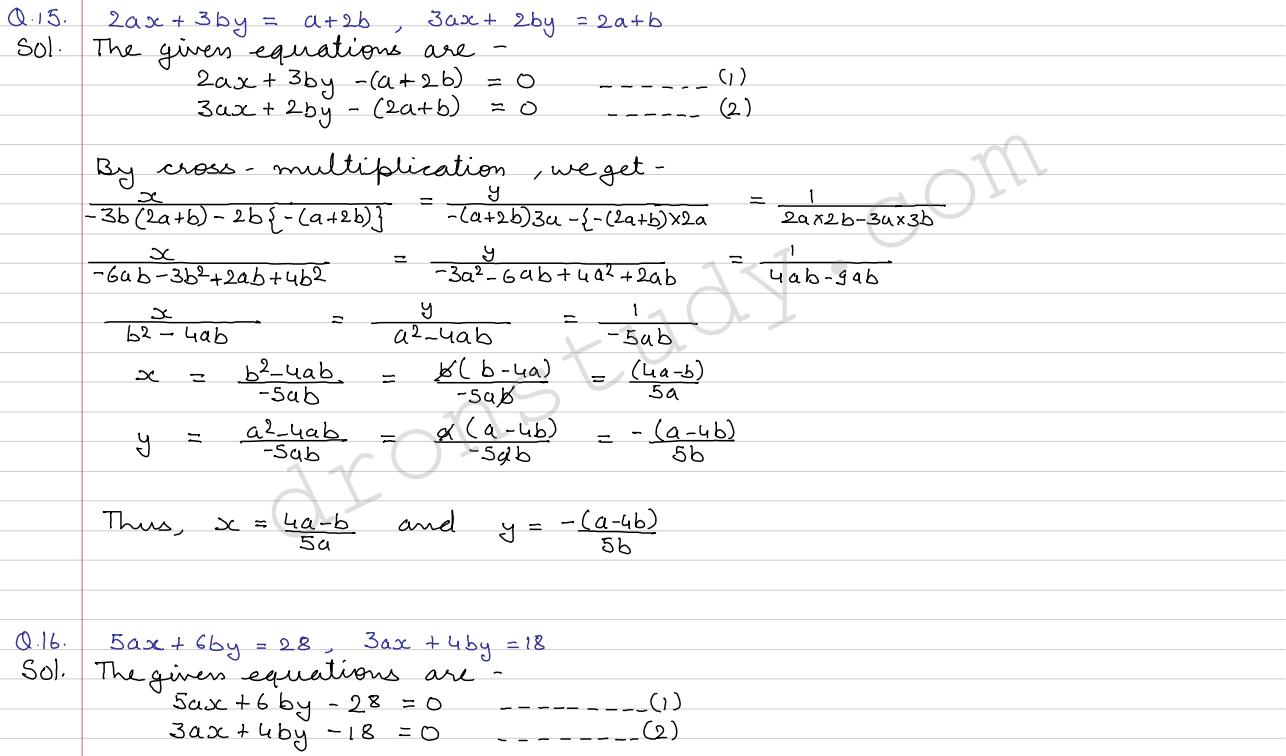 Q.15. 2ax + 3by = a+2b , 3ax + 2by = 2a+b
Sol. The given equations are -
2ax + 3by -(a+2b) = 0 ------ (1)
3ax + 2by - (2a+b) = 0 ------ (2)
By cross-multiplication, we get -
x/(-3b(2a+b) - 2b{-(a+2b)}) = y/(-(a+2b)3a -{-(2a+b)×2a) = 1/(2a×2b-3a×3b)
x/(-6ab-3b²+2ab+4b²) = y/(-3a²-6ab+4a²+2ab) = 1/(4ab-9ab)
x/(b²-4ab) = y/(a²-4ab) = 1/(-5ab)
x = (b²-4ab)/(-5ab) = b(b-4a)/(-5ab) = (4a-b)/5a
y = (a²-4ab)/(-5ab) = a(a-4b)/(-5ab) = -(a-4b)/5b
Thus, x = (4a-b)/5a and y = -(a-4b)/5b
Q.16. 5ax + 6by = 28 , 3ax + 4by = 18
Sol. The given equations are -
5ax + 6by - 28 = 0 ---------(1)
3ax + 4by - 18 = 0 --------(2)
dronstudy.com